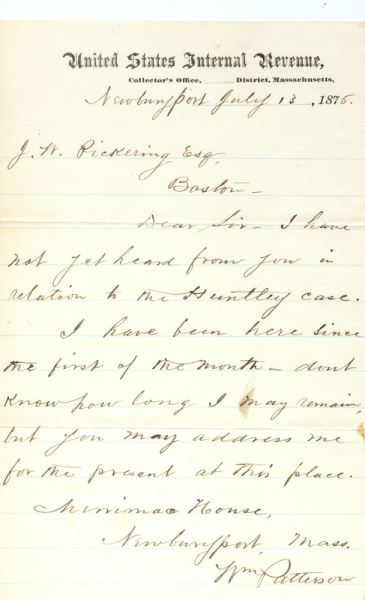 United States Internal Revenue,
Collector's Office, ........ District, Massachusetts,
Newburyport July 13, 1875.
J. W. Pickering Esq,
Boston —
Dear Sir — I have
not yet heard from you in
relation to the Huntley case.
I have been here since
the first of the month — dont
know how long I may remain,
but you may address me
for the present at this place.
Merrimac House,
Newburyport, Mass.
Wm Patterson